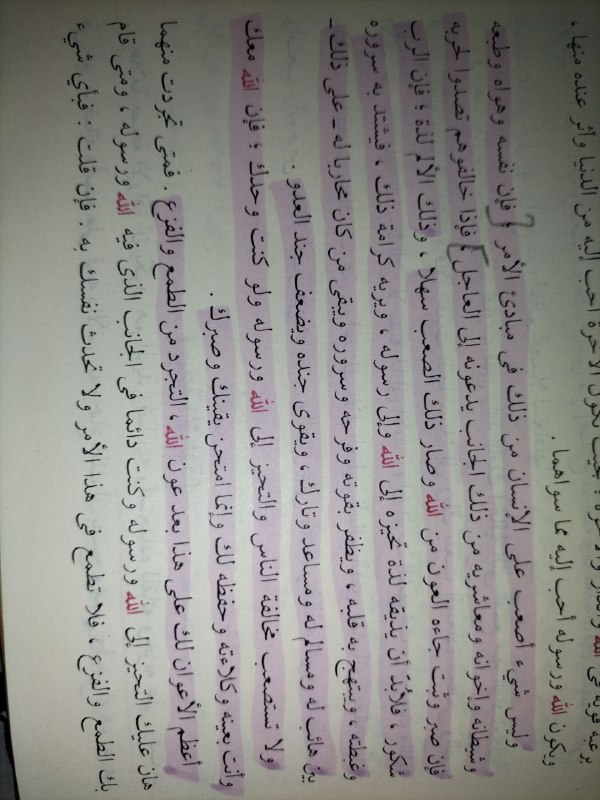 برغبة قوية فى الله والدار والآخرة ؛ بحيث تكون الآخرة أحب إليه من الدنيا وآثر عنده منها ،
ويكون الله ورسوله أحب إليه مما سواهما .
وليس شىء أصعب على الإنسان من ذلك فى مبادئ الأمر ؛ فإن نفسه وهواه وطبعه
وشيطانه وإخوانه ومعاشريه من ذلك الجانب يدعونه إلى العاجل ، فإذا خالفهم تصدوا لحربه
فإن صبر وثبت جاءه العون من الله وصار ذلك الصعب سهلا ، وذلك الألم لذة ؛ فإن الرب
شكور ، فلابُدّ أن يذيقه لذة تحيزه إلى الله وإلى رسوله ، ويريه كرامة ذلك ، فيشتد به سروره
وغبطته ، ويبتهج به قلبه ، ويظفر بقوته وفرحه وسروره ويبقى من كان محاربا له ـ على ذلك ـ
بين هائب له ومسالم له ومساعد وتارك ، ويقوى جنده ويضعف جند العدو .
ولا تستصعب مخالفة الناس والتحيز إلى الله ورسوله ولو كنت وحدك ؛ فإن الله معك
وأنت بعينه وكلاءته وحفظه لك وإنما امتحن يقينك وصبرك .
أعظم الأعوان لك على هذا بعد عون الله ، التجرد من الطمع والفزع . فمتى تجردت منهما
هان عليك التحيز إلى الله ورسوله وكنت دائما فى الجانب الذى فيه الله ورسوله ، ومتى قام
بك الطمع والفزع ، فلا تطمع فى هذا الأمر ولا تحدث نفسك به . فإن قلت : فبأى شىء